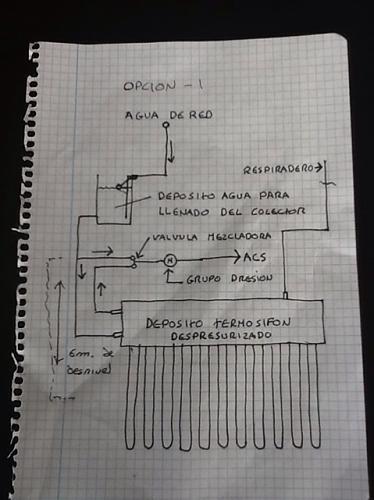 OPCION - 1
AGUA DE RED
RESPIRADERO
DEPOSITO AGUA PARA
LLENADO DEL COLECTOR
VALVULA MEZCLADORA
M
ACS
GRUPO PRESION
DEPOSITO TERMOSIFON
DESPRESURIZADO
6m. de
desnivel